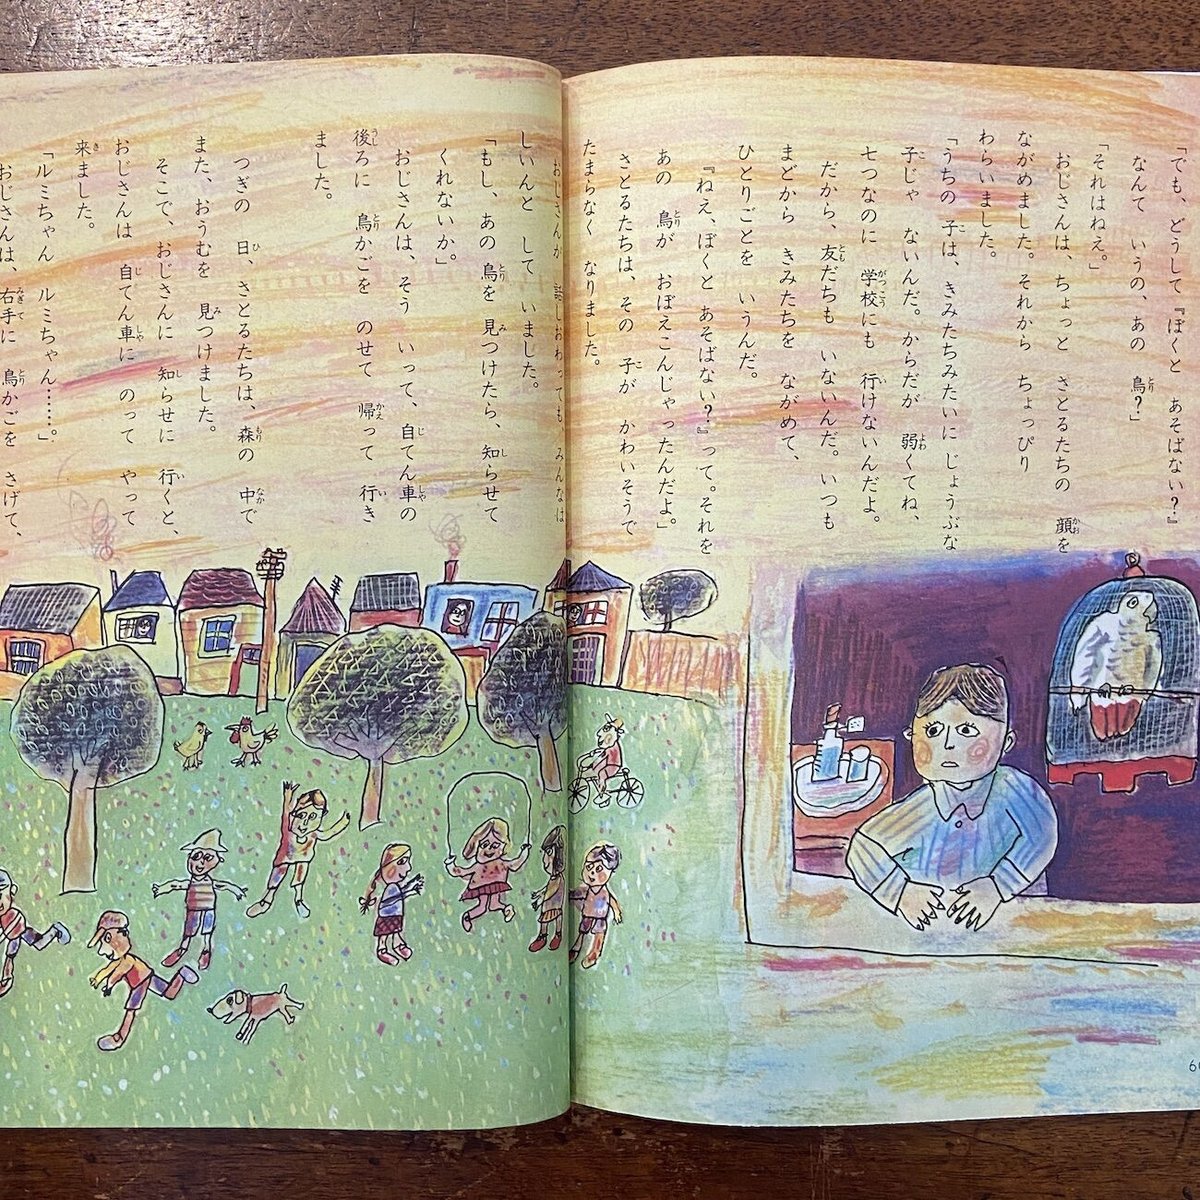 「でも、どうして『ぼくと　あそばない？』
なんて　いうの、あの　鳥？」
「それはねえ。」
おじさんは、ちょっと　さとるたちの　顔を
ながめました。それから　ちょっぴり
わらいました。
「うちの　子は、きみたちみたいに　じょうぶな
子じゃ　ないんだ。からだが　弱くてね、
七つなのに　学校にも　行けないんだよ。
だから、友だちも　いないんだ。いつも
まどから　きみたちを　ながめて、
ひとりごとを　いうんだ。
『ねえ、ぼくと　あそばない？』って。それを
あの　鳥が　おぼえこんじゃったんだよ」
さとるたちは、その　子が　かわいそうで
たまらなく　なりました。
おじさんが　話しおわっても　みんなは
しいんと　して　いました。
「もし、あの　鳥を　見つけたら、知らせて
くれないか。」
おじさんは、そう　いって、自てん車の
後ろに　鳥かごを　のせて　帰って　行き
ました。
つぎの　日、さとるたちは、森の　中で
また、おうむを　見つけました。
そこで、おじさんに　知らせに　行くと、
おじさんは　自てん車に　のって　やって
来ました。
「ルミちゃん　ルミちゃん……。」
おじさんは、右手に　鳥かごを　さげて、